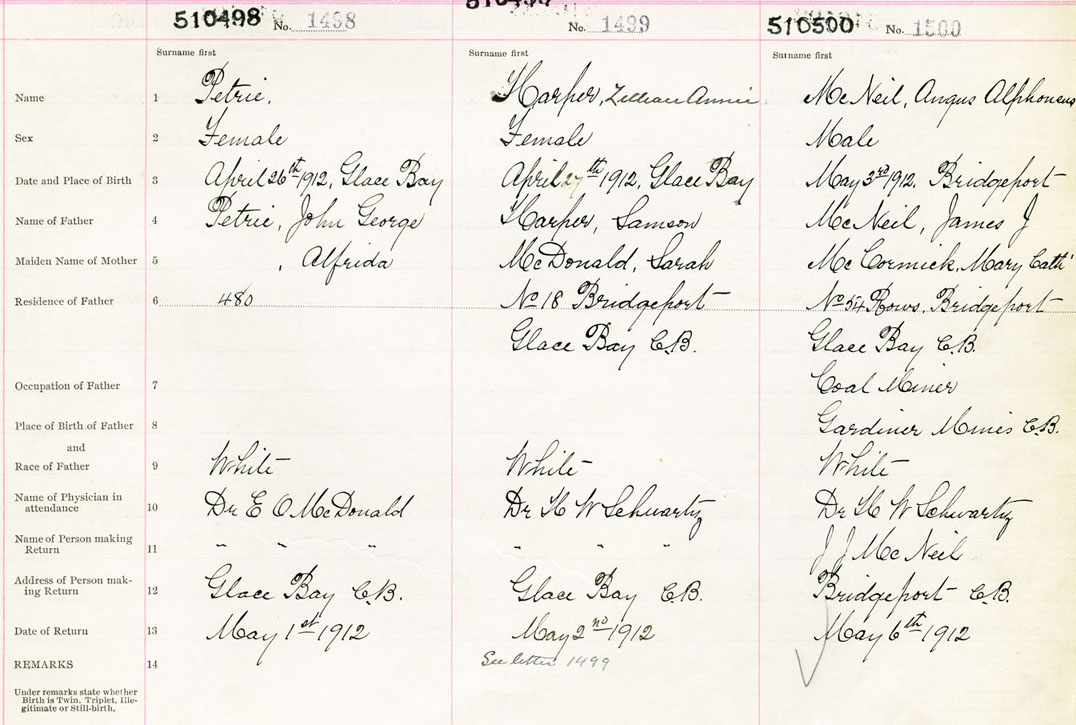 510498 No. 1498
No. 1499
510500 No. 1500
Surname first Surname first Surname first
Name 1 Petrie, Harper, Lillian Annie McNeil, Angus Alphonsus
Sex 2 Female Female Male
Date and Place of Birth 3 April 26th 1912, Glace Bay April 27th 1912, Glace Bay May 3rd 1912. Bridgeport
Name of Father 4 Petrie, John George Harper, Samson McNeil, James J
Maiden Name of Mother 5 , Alfrida McDonald, Sarah McCormick, Mary Cath'
Residence of Father 6 480 No 18 Bridgeport No 54 Rows, Bridgeport
Glace Bay C.B. Glace Bay C.B.
Occupation of Father 7 Coal Miner
Place of Birth of Father 8 Gardiner Mines C.B.
and
Race of Father 9 White White White
Name of Physician in
attendance 10 Dr E O McDonald Dr H W Schwartz Dr H W Schwartz
Name of Person making
Return 11 " " " " " " J J McNeil
Address of Person mak-
ing Return 12 Glace Bay C.B. Glace Bay C.B. Bridgeport C.B.
Date of Return 13 May 1st 1912 May 2nd 1912 May 6th 1912
REMARKS 14 See letter 1499
Under remarks state whether
Birth is Twin, Triplet, Ille-
gitimate or Still-birth.